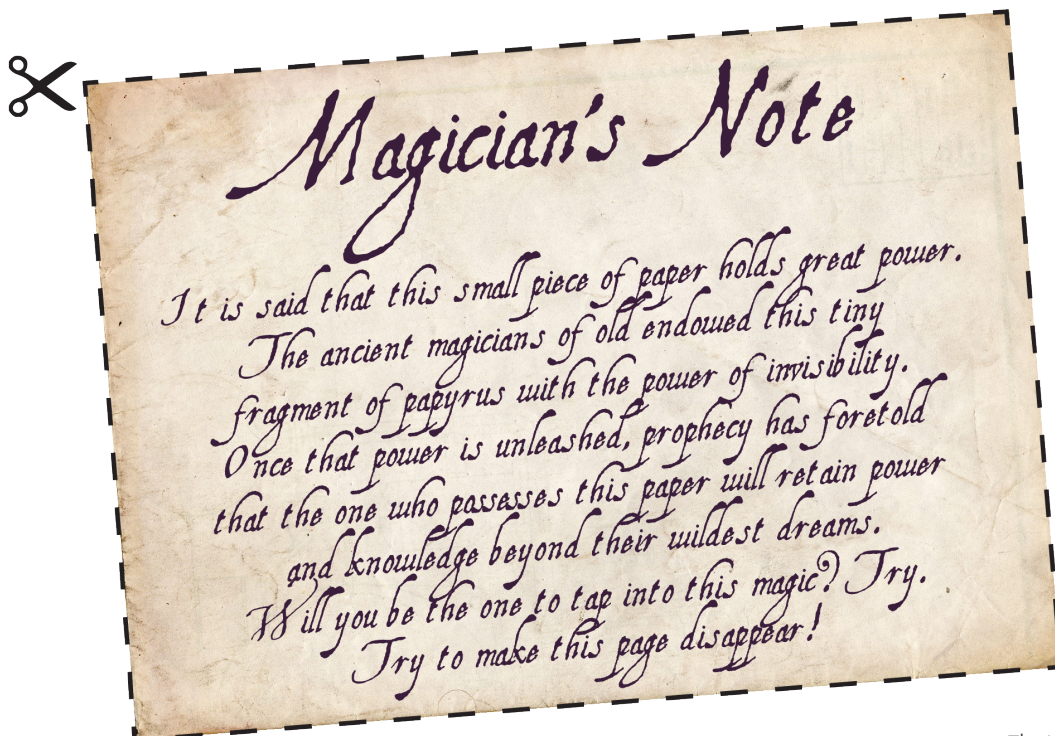 Magician's Note
It is said that this small piece of paper holds great power.
The ancient magicians of old endowed this tiny
fragment of papyrus with the power of invisibility.
Once that power is unleashed, prophecy has foretold
that the one who possesses this paper will retain power
and knowledge beyond their wildest dreams.
Will you be the one to tap into this magic? Try.
Try to make this page disappear!